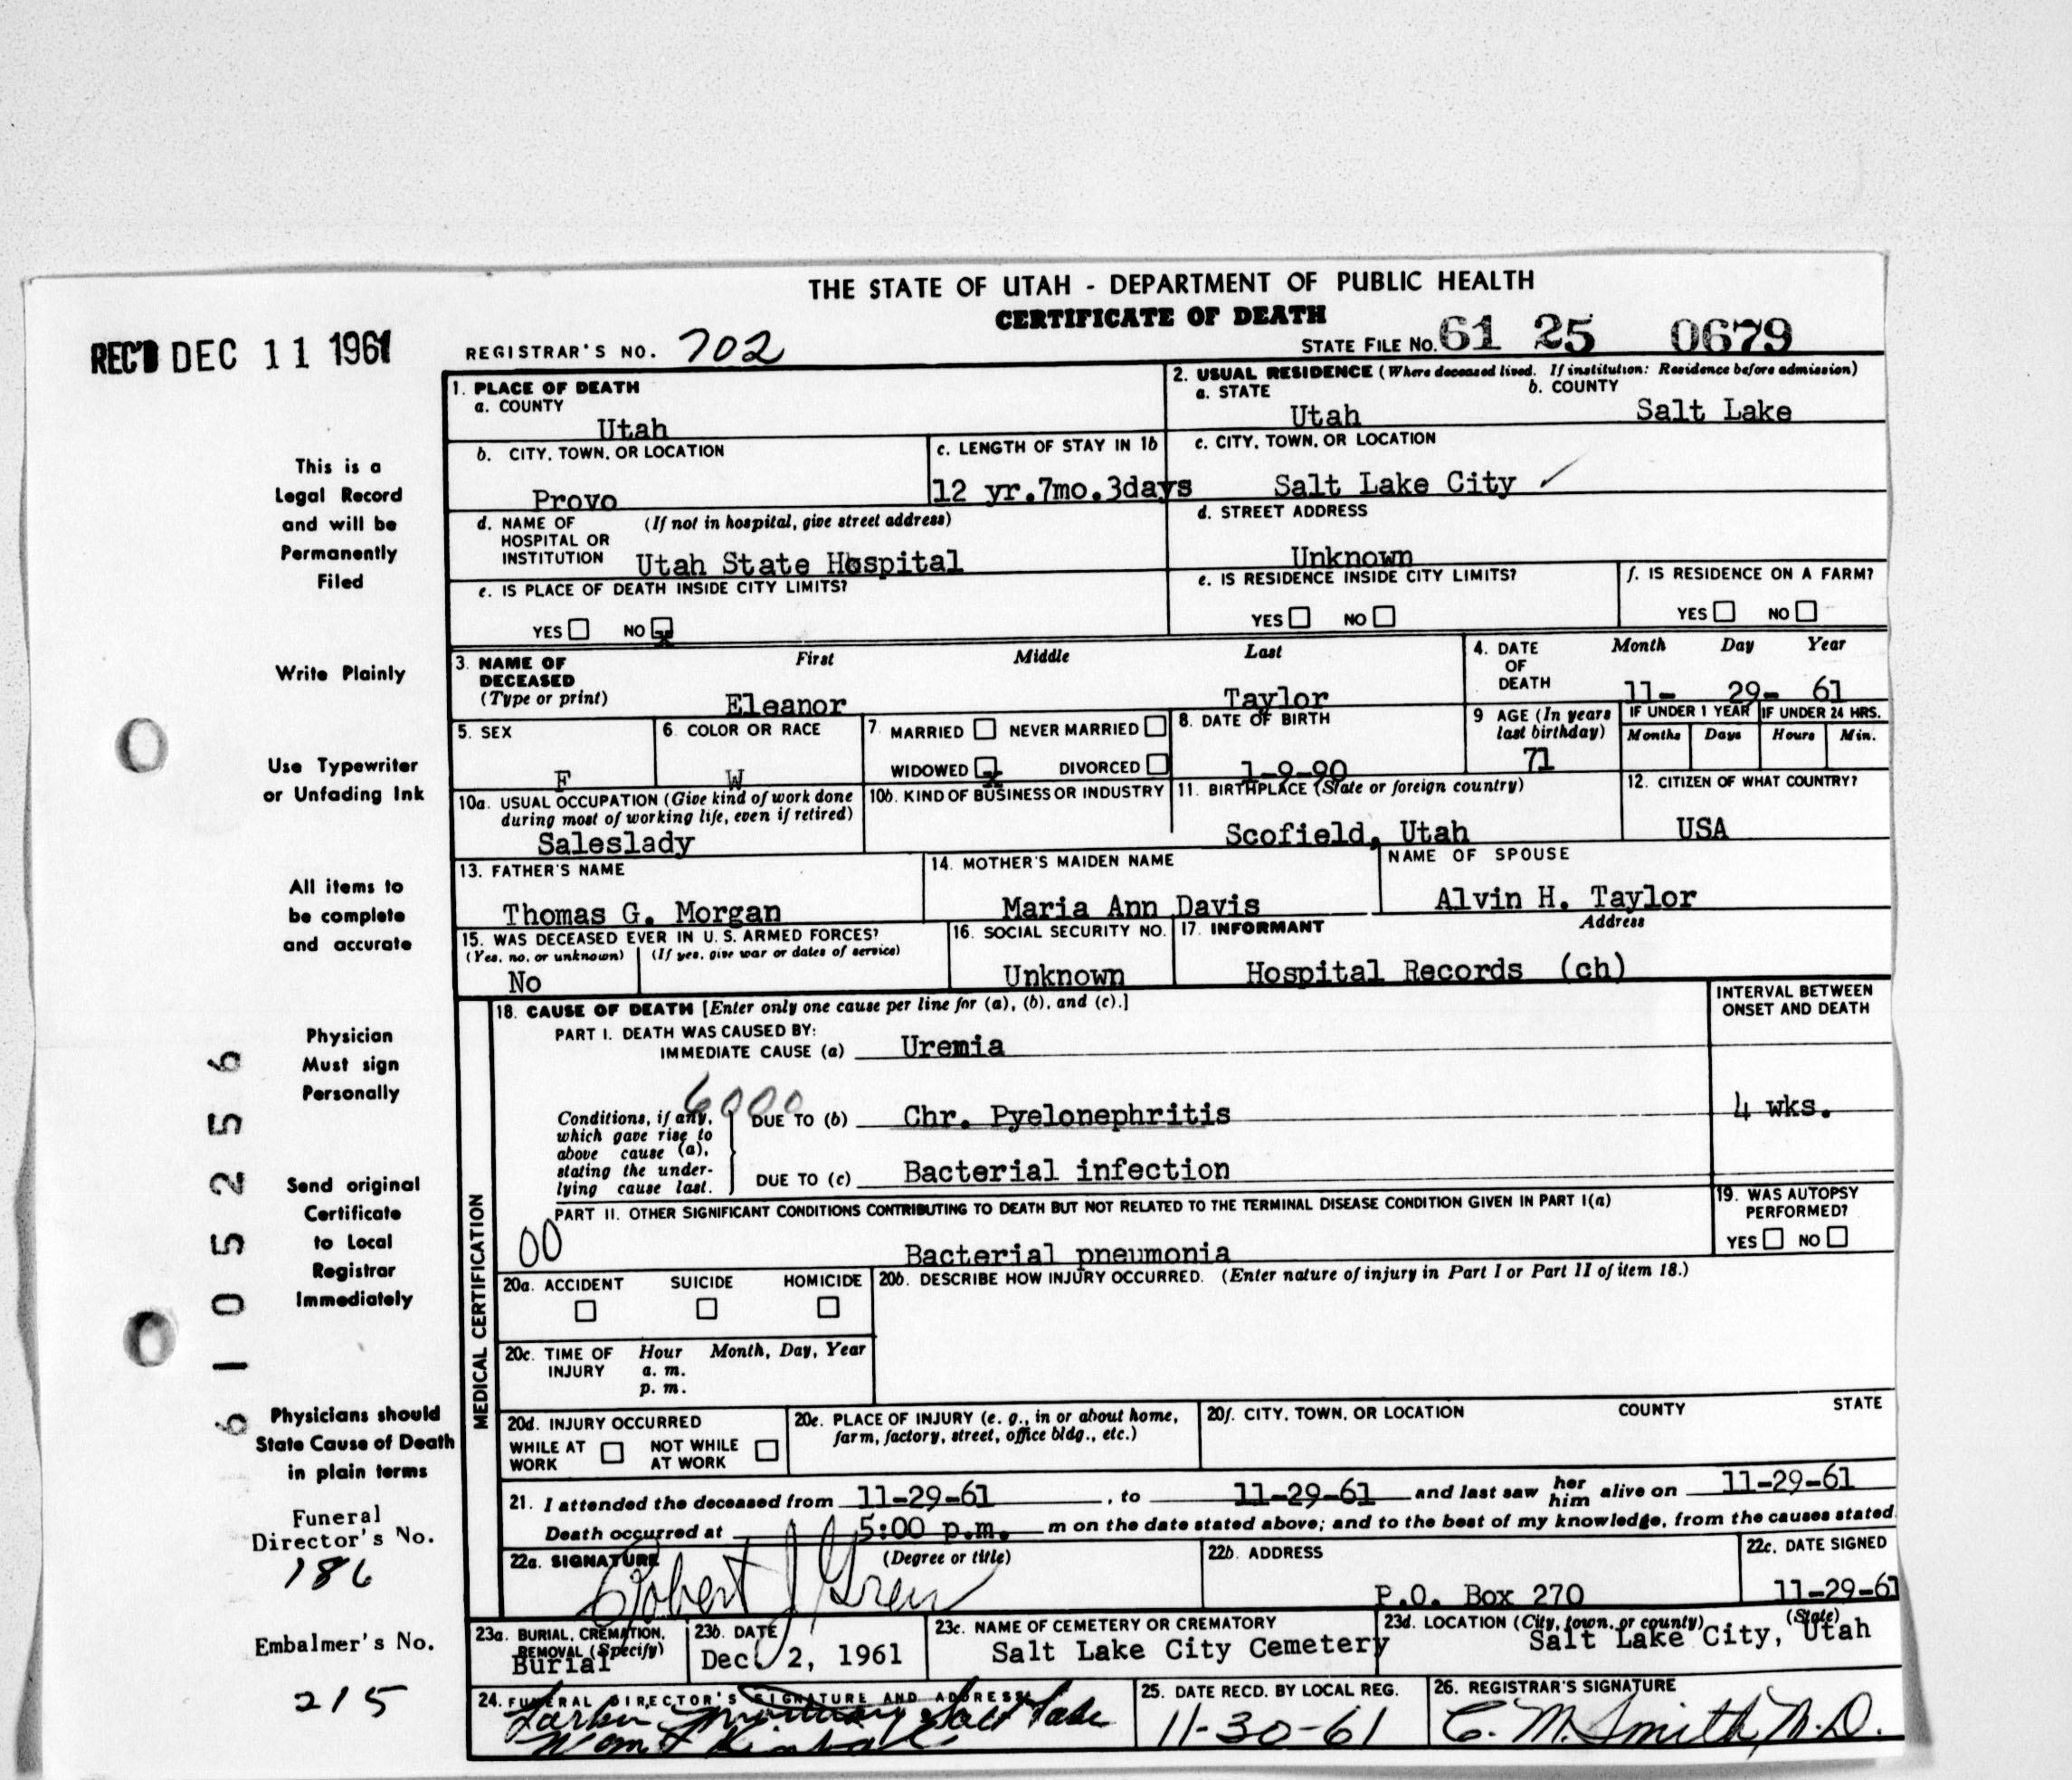 THE STATE OF UTAH - DEPARTMENT OF PUBLIC HEALTH
CERTIFICATE OF DEATH
REC'D DEC 11 1961
REGISTRAR'S NO. 702
STATE FILE No. 61 25 0679
1. PLACE OF DEATH
a. COUNTY
Utah
2. USUAL RESIDENCE (Where deceased lived. If institution: Residence before admission)
a. STATE
Utah
b. COUNTY
Salt Lake
b. CITY, TOWN, OR LOCATION
Provo
c. LENGTH OF STAY IN 1b
12 yr.7mo.3days
c. CITY, TOWN, OR LOCATION
Salt Lake City
d. NAME OF (If not in hospital, give street address)
HOSPITAL OR
INSTITUTION Utah State Hospital
d. STREET ADDRESS
Unknown
e. IS PLACE OF DEATH INSIDE CITY LIMITS?
YES NO x
e. IS RESIDENCE INSIDE CITY LIMITS?
YES NO
f. IS RESIDENCE ON A FARM?
YES NO
3. NAME OF
DECEASED
(Type or print)
First Middle Last
Eleanor Taylor
4. DATE
OF
DEATH
Month Day Year
11- 29- 61
5. SEX
F
6. COLOR OR RACE
W
7. MARRIED NEVER MARRIED
WIDOWED x DIVORCED
8. DATE OF BIRTH
1-9-90
9 AGE (In years
last birthday)
71
IF UNDER 1 YEAR
Months Days
IF UNDER 24 HRS.
Hours Min.
10a. USUAL OCCUPATION (Give kind of work done
during most of working life, even if retired)
Saleslady
10b. KIND OF BUSINESS OR INDUSTRY
11. BIRTHPLACE (State or foreign country)
Scofield, Utah
12. CITIZEN OF WHAT COUNTRY?
USA
13. FATHER'S NAME
Thomas G. Morgan
14. MOTHER'S MAIDEN NAME
Maria Ann Davis
NAME OF SPOUSE
Alvin H. Taylor
15. WAS DECEASED EVER IN U. S. ARMED FORCES?
(Yes, no, or unknown) (If yes, give war or dates of service)
No
16. SOCIAL SECURITY NO.
Unknown
17. INFORMANT Address
Hospital Records (ch)
MEDICAL CERTIFICATION
18. CAUSE OF DEATH [Enter only one cause per line for (a), (b), and (c).]
INTERVAL BETWEEN
ONSET AND DEATH
PART I. DEATH WAS CAUSED BY:
IMMEDIATE CAUSE (a) Uremia
6000
Conditions, if any,
which gave rise to
above cause (a),
stating the under-
lying cause last.
DUE TO (b) Chr. Pyelonephritis
4 wks.
DUE TO (c) Bacterial infection
PART II. OTHER SIGNIFICANT CONDITIONS CONTRIBUTING TO DEATH BUT NOT RELATED TO THE TERMINAL DISEASE CONDITION GIVEN IN PART I(a)
00
Bacterial pneumonia
19. WAS AUTOPSY
PERFORMED?
YES NO
20a. ACCIDENT SUICIDE HOMICIDE
20b. DESCRIBE HOW INJURY OCCURRED. (Enter nature of injury in Part I or Part II of item 18.)
20c. TIME OF Hour Month, Day, Year
INJURY a. m.
p. m.
20d. INJURY OCCURRED
WHILE AT NOT WHILE
WORK AT WORK
20e. PLACE OF INJURY (e. g., in or about home,
farm, factory, street, office bldg., etc.)
20f. CITY, TOWN, OR LOCATION COUNTY STATE
21. I attended the deceased from 11-29-61 , to 11-29-61 and last saw her him alive on 11-29-61
Death occurred at 5:00 p.m. m on the date stated above; and to the best of my knowledge, from the causes stated
22a. SIGNATURE (Degree or title)
Robert J Grew
22b. ADDRESS
P.O. Box 270
22c. DATE SIGNED
11-29-61
23a. BURIAL, CREMATION,
REMOVAL (Specify)
Burial
23b. DATE
Dec. 2, 1961
23c. NAME OF CEMETERY OR CREMATORY
Salt Lake City Cemetery
23d. LOCATION (City, town, or county) (State)
Salt Lake City, Utah
24. FUNERAL DIRECTOR'S SIGNATURE AND ADDRESS
Larkin Mortuary Salt Lake
25. DATE RECD. BY LOCAL REG.
11-30-61
26. REGISTRAR'S SIGNATURE
C. M. Smith, M.D.
This is a
Legal Record
and will be
Permanently
Filed
Write Plainly
Use Typewriter
or Unfading Ink
All items to
be complete
and accurate
Physician
Must sign
Personally
Send original
Certificate
to Local
Registrar
Immediately
Physicians should
State Cause of Death
in plain terms
Funeral
Director's No.
186
Embalmer's No.
215
6105256